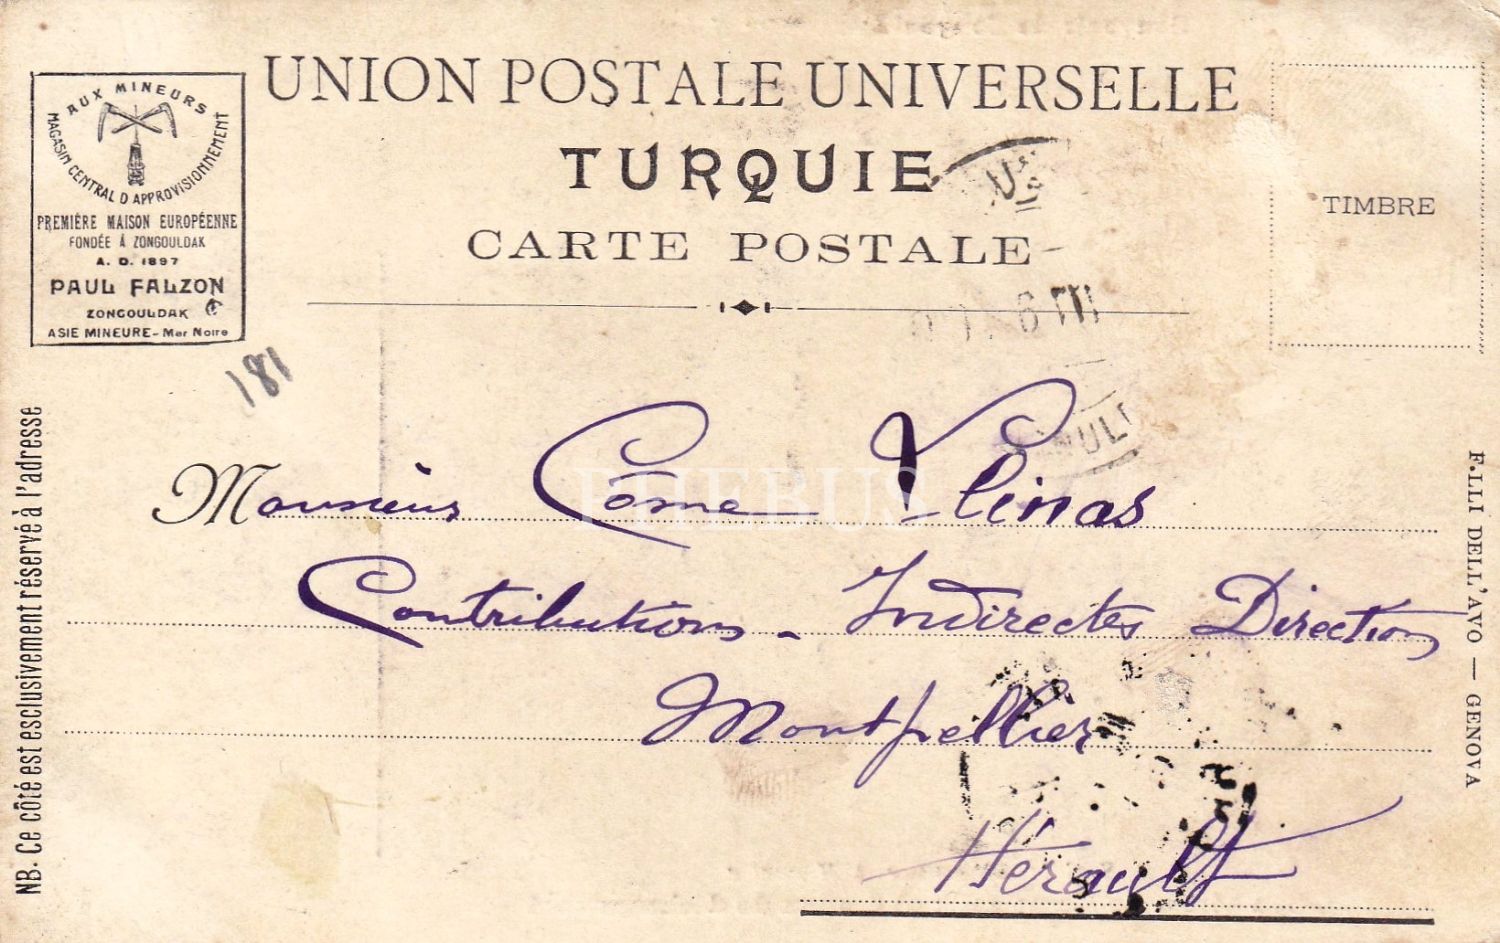 UNION POSTALE UNIVERSELLE
TURQUIE
CARTE POSTALE
AUX MINEURS
MAGASIN CENTRAL D APPROVISIONNEMENT
PREMIÈRE MAISON EUROPÉENNE
FONDÉE À ZONGOULDAK
A. D. 1897
PAUL FALZON
ZONGOULDAK
ASIE MINEURE - Mer Noire
TIMBRE
181
Monsieur Côme
Contributions - Indirectes Direction
Montpellier
Hérault
PHEBUS
NB. Ce côté est esclusivement réservé à l'adresse
F.LLI DELL'AVO — GENOVA